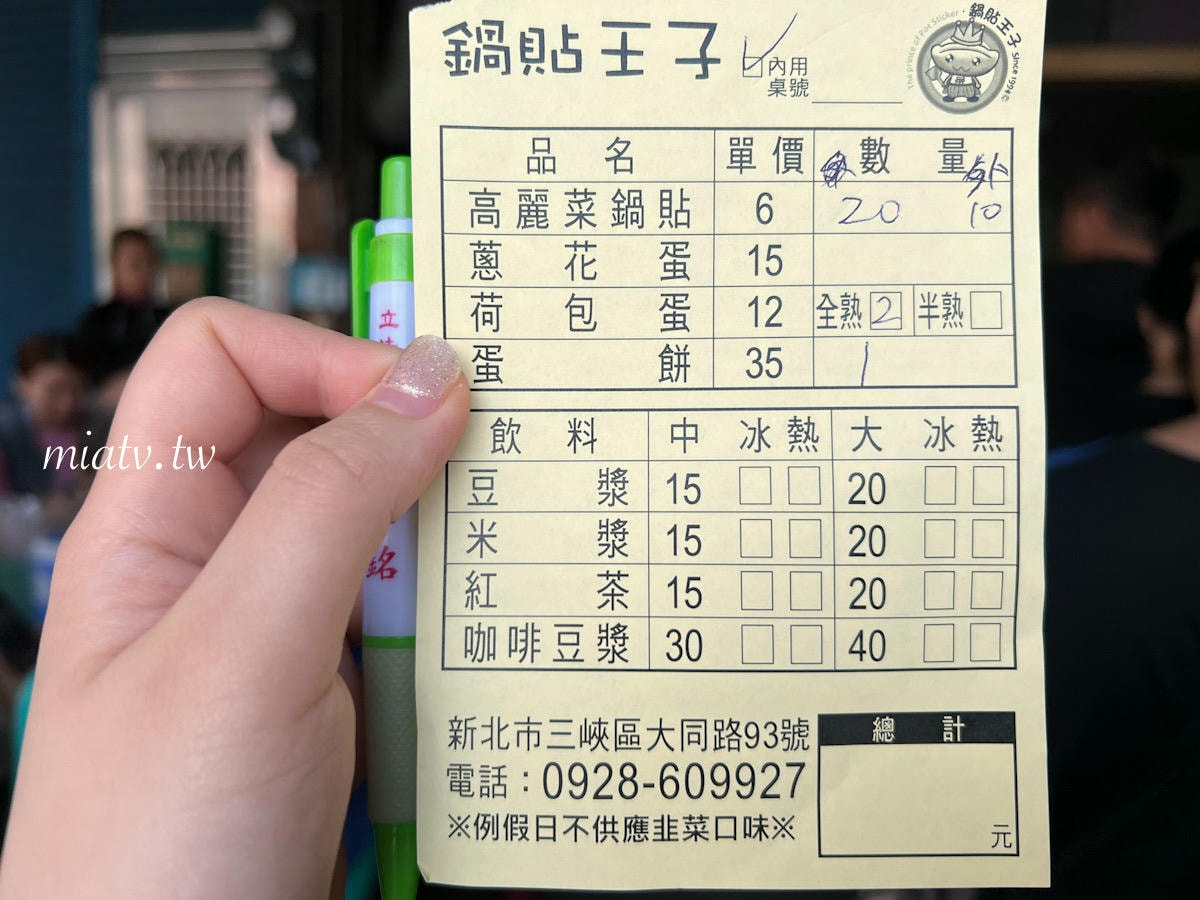 鍋貼王子 內用
桌號
The prince of Pot Sticker · 鍋貼王子 since 1994
品名 單價 數量 外
高麗菜鍋貼 6 20 10
蔥花蛋 15
荷包蛋 12 全熟 2 半熟
蛋餅 35 1
飲料 中 冰 熱 大 冰 熱
豆漿 15 20
米漿 15 20
紅茶 15 20
咖啡豆漿 30 40
新北市三峽區大同路93號
電話：0928-609927
※例假日不供應韭菜口味※
總計
元
立
銘
miatv.tw